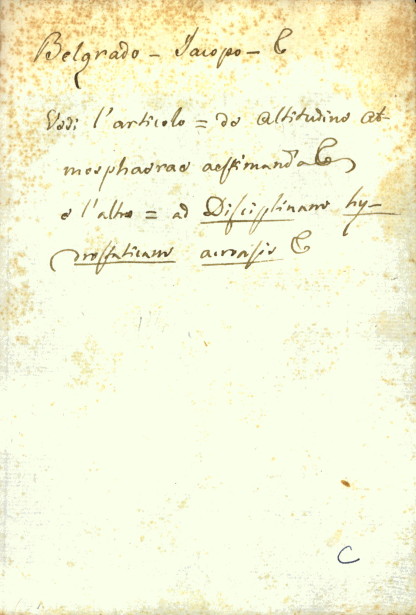 Belgrado - Jacopo - C
Vedi l'articolo = de Altitudine At-
mosphaerae aestimanda C
e l'altro = ad Disciplinam hy-
drostaticam acroasis C
C